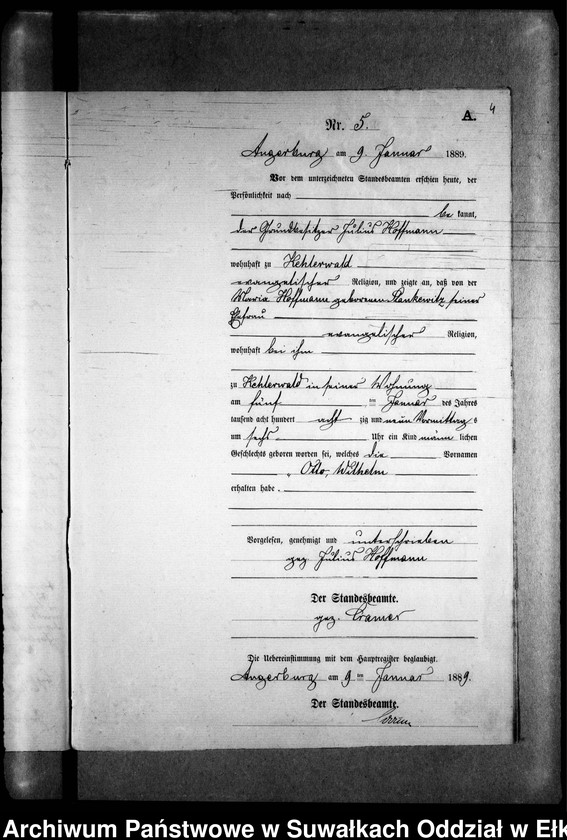 4
A.
Nr. 5.
Angerburg am 9. Januar 1889.
Vor dem unterzeichneten Standesbeamten erschien heute, der
Persönlichkeit nach
be kannt,
der Grundbesitzer Julius Hoffmann
wohnhaft zu Kehlerwald
evangelischer Religion, und zeigte an, daß von der
Maria Hoffmann geborenen Stankewitz seiner
Ehefrau
evangelischer Religion,
wohnhaft bei ihm
zu Kehlerwald in seiner Wohnung
am fünf ten Januar des Jahres
tausend acht hundert acht zig und neun Vormittags
um sechs Uhr ein Kind männ lichen
Geschlechts geboren worden sei, welches die Vornamen
Otto, Wilhelm
erhalten habe.
Vorgelesen, genehmigt und unterschrieben
gez. Julius Hoffmann
Der Standesbeamte.
gez. Cramer
Die Uebereinstimmung mit dem Hauptregister beglaubigt.
Angerburg am 9 ten Januar 1889.
Der Standesbeamte.
Archiwum Państwowe w Suwałkach Oddział w Ełk